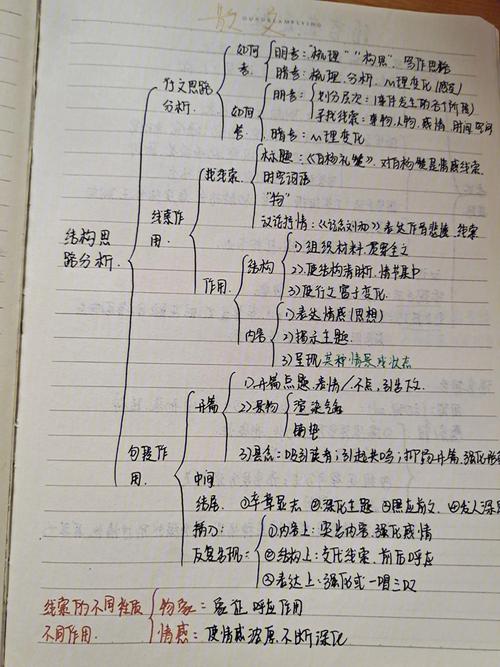 散文
如何考：
明考："梳理""构思"，写作思路
暗考：梳理、分析、心理变化（感受）
行文思路分析.
如何答：
明考：
划分层次：（事件发生的各个阶段）
寻找线索：事物、人物、感情、时间、空间
暗考：心理变化
结构思路分析.
线索作用.
找线索
标题：《百合礼赞》，对百合赞是情感线索.
时空词语
"物"
议论抒情：
表达作者悲慨、线索
作用.
结构
1）组织材料、贯穿全文
2）使结构清晰、情节集中
3）使行文富于变化.
内容
1）表达情感（思想）
2）揭示主题.
3）呈现某种情景或状态
句段作用.
开篇
1）开篇点题、表情/不点，引出下文.
2）景物
渲染气氛
铺垫
3）悬念：吸引读者；引起共鸣；
开篇、强化
中间
结尾. ①卒章显志 ②深化主题 ③照应前文
④发人深
插入：
反复出现：
①内容上：突出内容、强化感情
②结构上：文化线索、前后呼应
③表达上：强化或一唱三叹
线索的不同性质
不同作用.
物象：象征、呼应作用
情感：使情感波澜不断深化